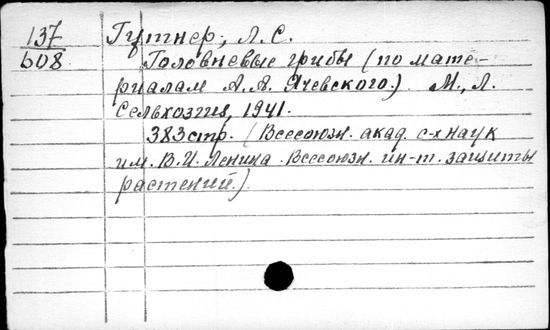 137 Гутнер, Л.С.
608 Головневые грибы (по мате-
риалам А.А. Ячевского.) М., Л.
Сельхозгиз, 1941.
383 стр. (Всесоюзн. акад. с-х наук
им. В.И. Ленина. Всесоюзн. ин-т. защиты
растений.)